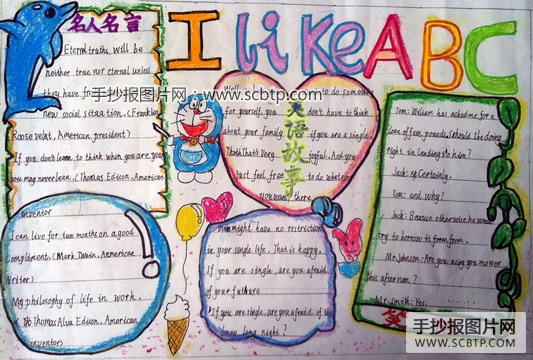 I like ABC
名人名言
Eternal truths will be
neither true nor eternal unless
they have fo
new social situation. (Franklin
Roosevelt, American president)
If you don't learn to think when you are young
you may never learn. (Thomas Edison, American
inventor
I can live for two months on a good
Compliment. (Mark Twain, American
Writer)
My philosophy of life in work.
Thomas Alva Edison, American
inventor)
英语故事
to do something
for yourself, you don't have to think
about your family. if you are a single
That's That's Very joyful. And you
Just feel free to do whatever
you want, there
might have no restriction
in your single life. That is happy.
If you are single, are you afraid
of your future
If you are single, are you afraid of the
long night?
Tom: William has asked me for a
loan of five pounds, should I be doing
right in lending to him?
Jack: Certainly.
Tom: and Why?
Jack: Because otherwise he would
try to borrow it form form.
Mr Johnson: Are you using you mower
this afternoon?
Mr. Smith: Yes. ......
笑
手抄报图片网：www.scbtp.com
手抄报图片网
WWW.SCBTP.COM